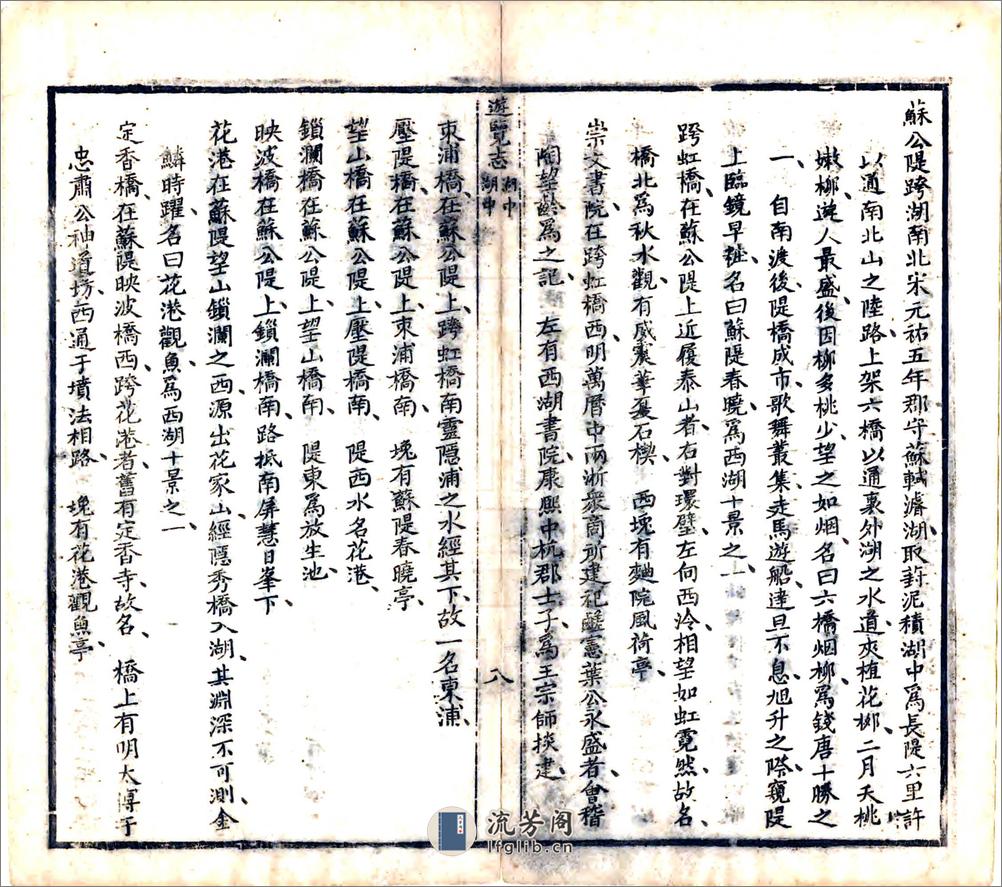 蘇公隄跨湖南北宋元祐五年郡守蘇軾濬湖取葑泥積湖中爲長隄六里許
以通南北山之陸路上架六橋以通裏外湖之水道夾植花桞二月夭桃
嫩柳遊人最盛後因柳多桃少望之如烟名曰六橋烟柳爲錢唐十勝之
一　自南渡後隄橋成市歌舞叢集走馬遊船達旦不息旭升之際窺隄
上臨鏡早粧名曰蘇隄春曉爲西湖十景之一
跨虹橋在蘇公隄上近履泰山者右對環璧左向西泠相望如虹霓然故名
橋北爲秋水觀有臧襄華夏石楔　西堍有麯院風荷亭
崇文書院在跨虹橋西明萬曆中兩浙衆商所建祀鹺憲葉公永盛者會稽
陶望齡爲之記　左有西湖書院康熙中杭郡士子爲王宗師掞建
東浦橋在蘇公隄上跨虹橋南靈隱浦之水經其下故一名東浦
壓隄橋在蘇公隄上東浦橋南　堍有蘇隄春曉亭
望山橋在蘇公隄上壓隄橋南　隄西水名花港
鎖瀾橋在蘇公隄上望山橋南　隄東爲放生池
映波橋在蘇公隄上鎖瀾橋南路抵南屏慧日峯下
花港在蘇隄望山鎖瀾之西源出花家山經隱秀橋入湖其淵深不可測金
鱗時躍名曰花港觀魚爲西湖十景之一
定香橋在蘇隄映波橋西跨花港者舊有定香寺故名　橋上有明太傅于
忠肅公神道坊西通于墳法相路　堍有花港觀魚亭
遊覽志　湖中　湖中　八
流芳阁
lfglib.cn